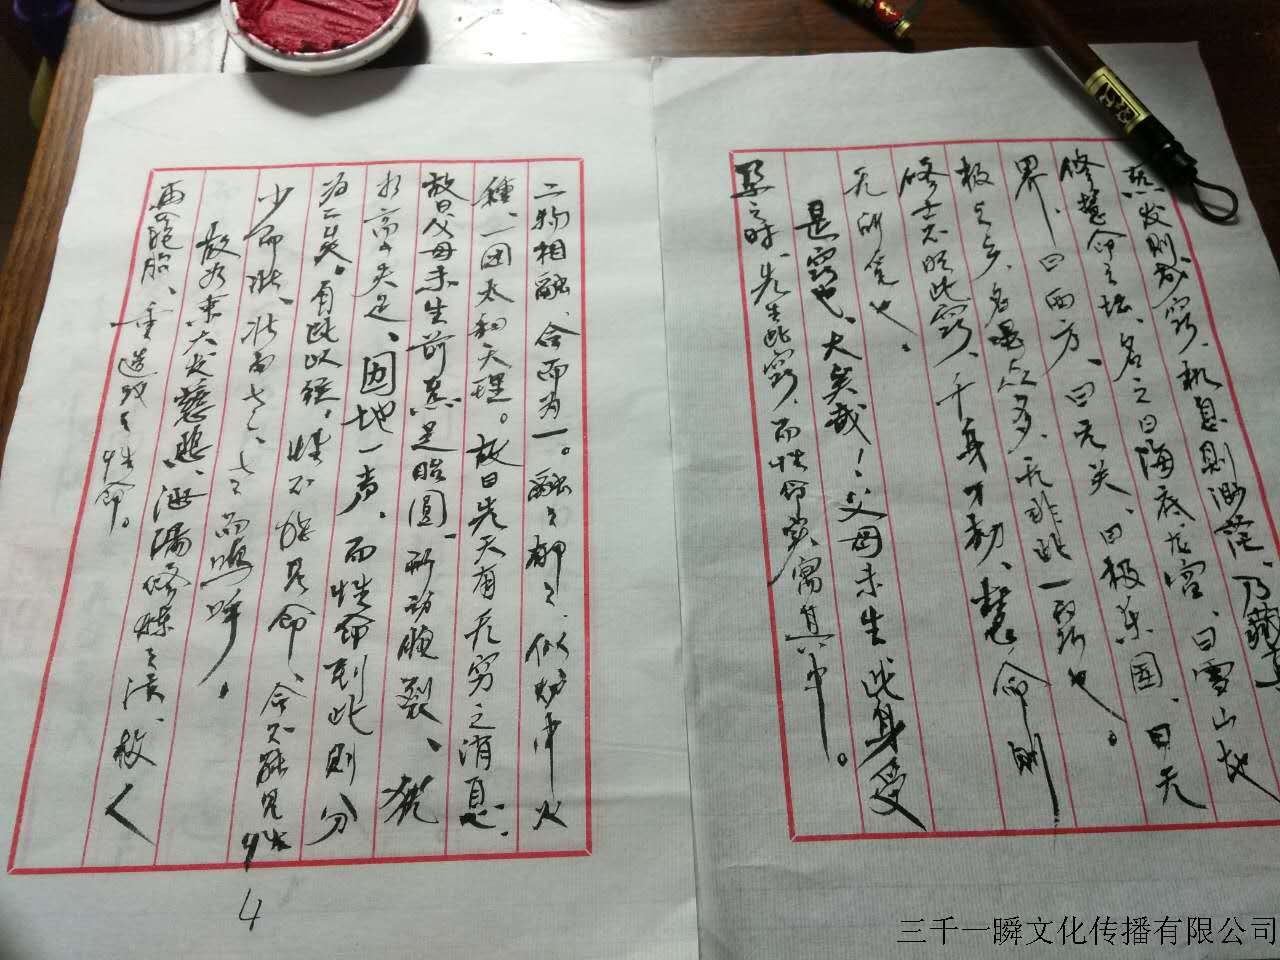 蒸发则成窍、机息则渺茫、乃藏真
修慧命之坛、名之曰海底龙宫、曰雪山地
界、曰西方、曰元关、曰极乐国、曰无
极之乡、名虽众多、无非此一窍也。
修士不明此窍、千身万劫、慧命则
无所觅也。
是窍也、大矣哉！父母未生此身受
孕之时、先生此窍、而性命实寓其中。
二物相融、合而为一。融之郁之、似炉中火
種、一团太和天理。故曰先天有无穷之消息、
故曰父母未生前、炁足胎圆、形动胞裂、犹
如高山失足、㘞地一声、而性命到此则分
为二矣。自此以往、性不能見命、命不能見性
少而壮、壮而老、老而嗚呼。
故如来大发慈悲、泄漏修煉之法、教人
再入胞胎、重造我之性命。
4
三千一瞬文化传播有限公司